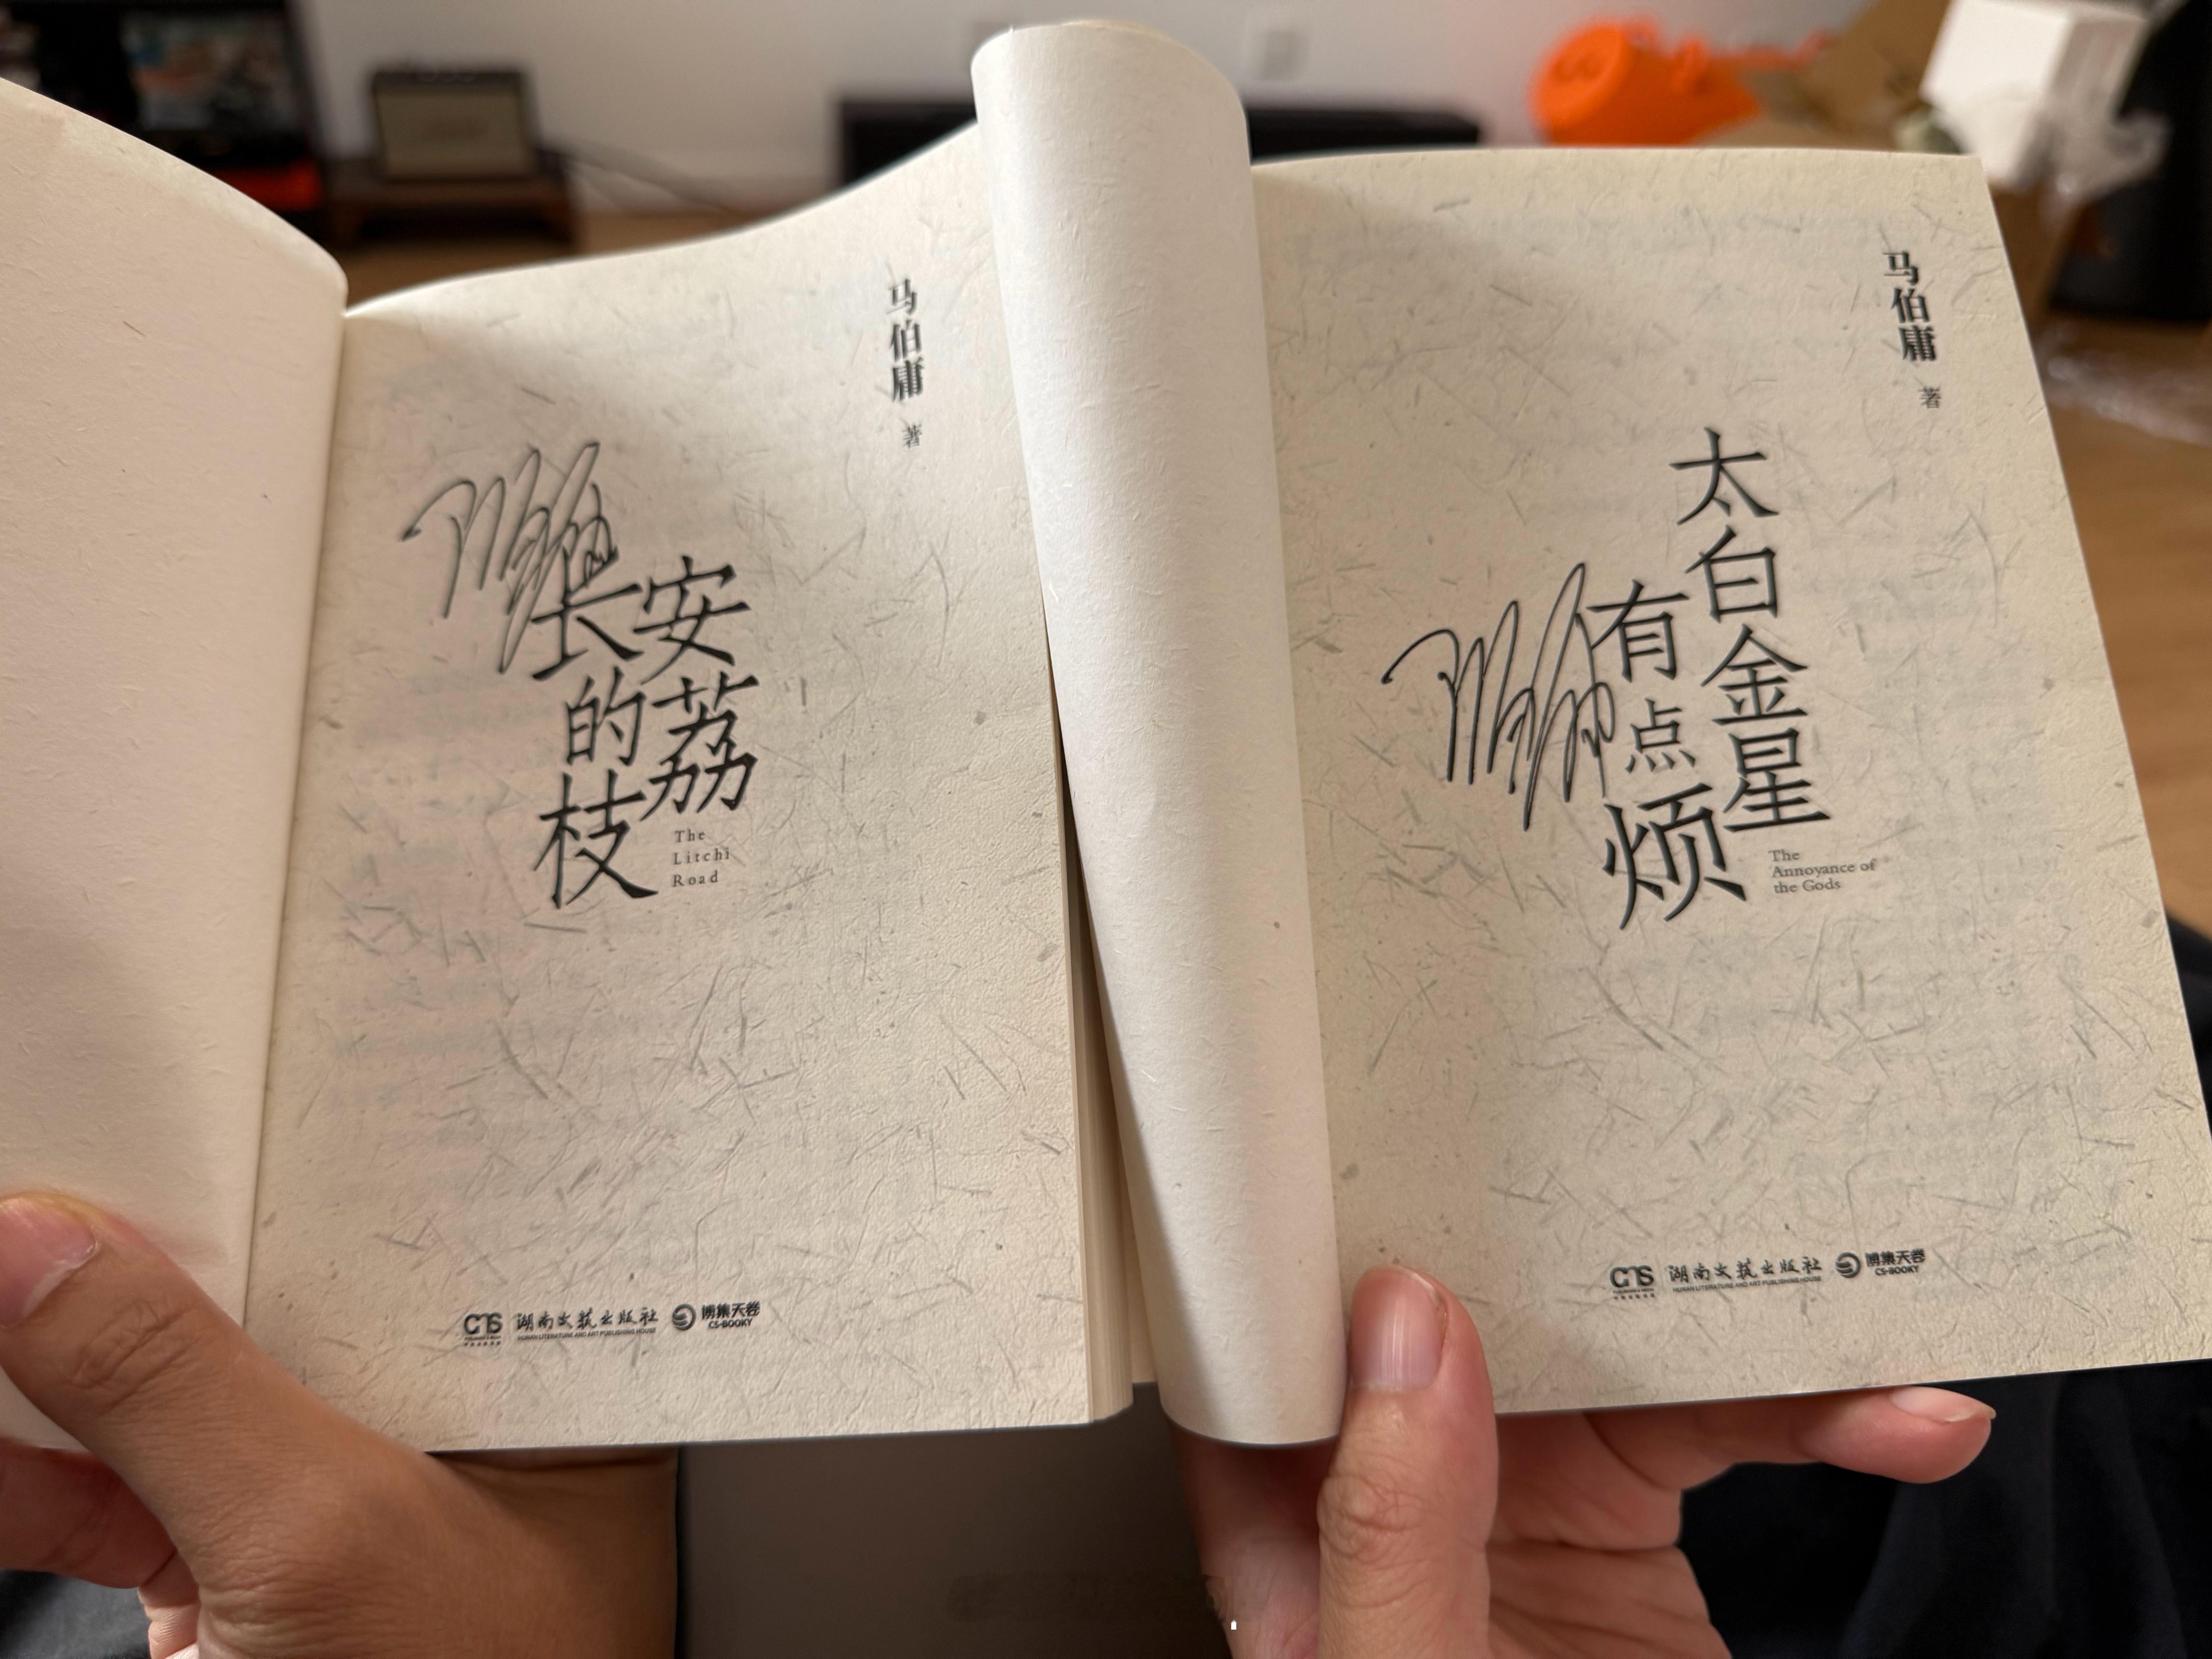 马伯庸 著
长安
的荔
枝
The
Litchi
Road
CNS 湖南文艺出版社 博集天卷
HUNAN LITERATURE AND ART PUBLISHING HOUSE CS-BOOKY
马伯庸 著
太白金星
有点烦
The
Annoyance of
the Gods
CNS 湖南文艺出版社 博集天卷
HUNAN LITERATURE AND ART PUBLISHING HOUSE CS-BOOKY